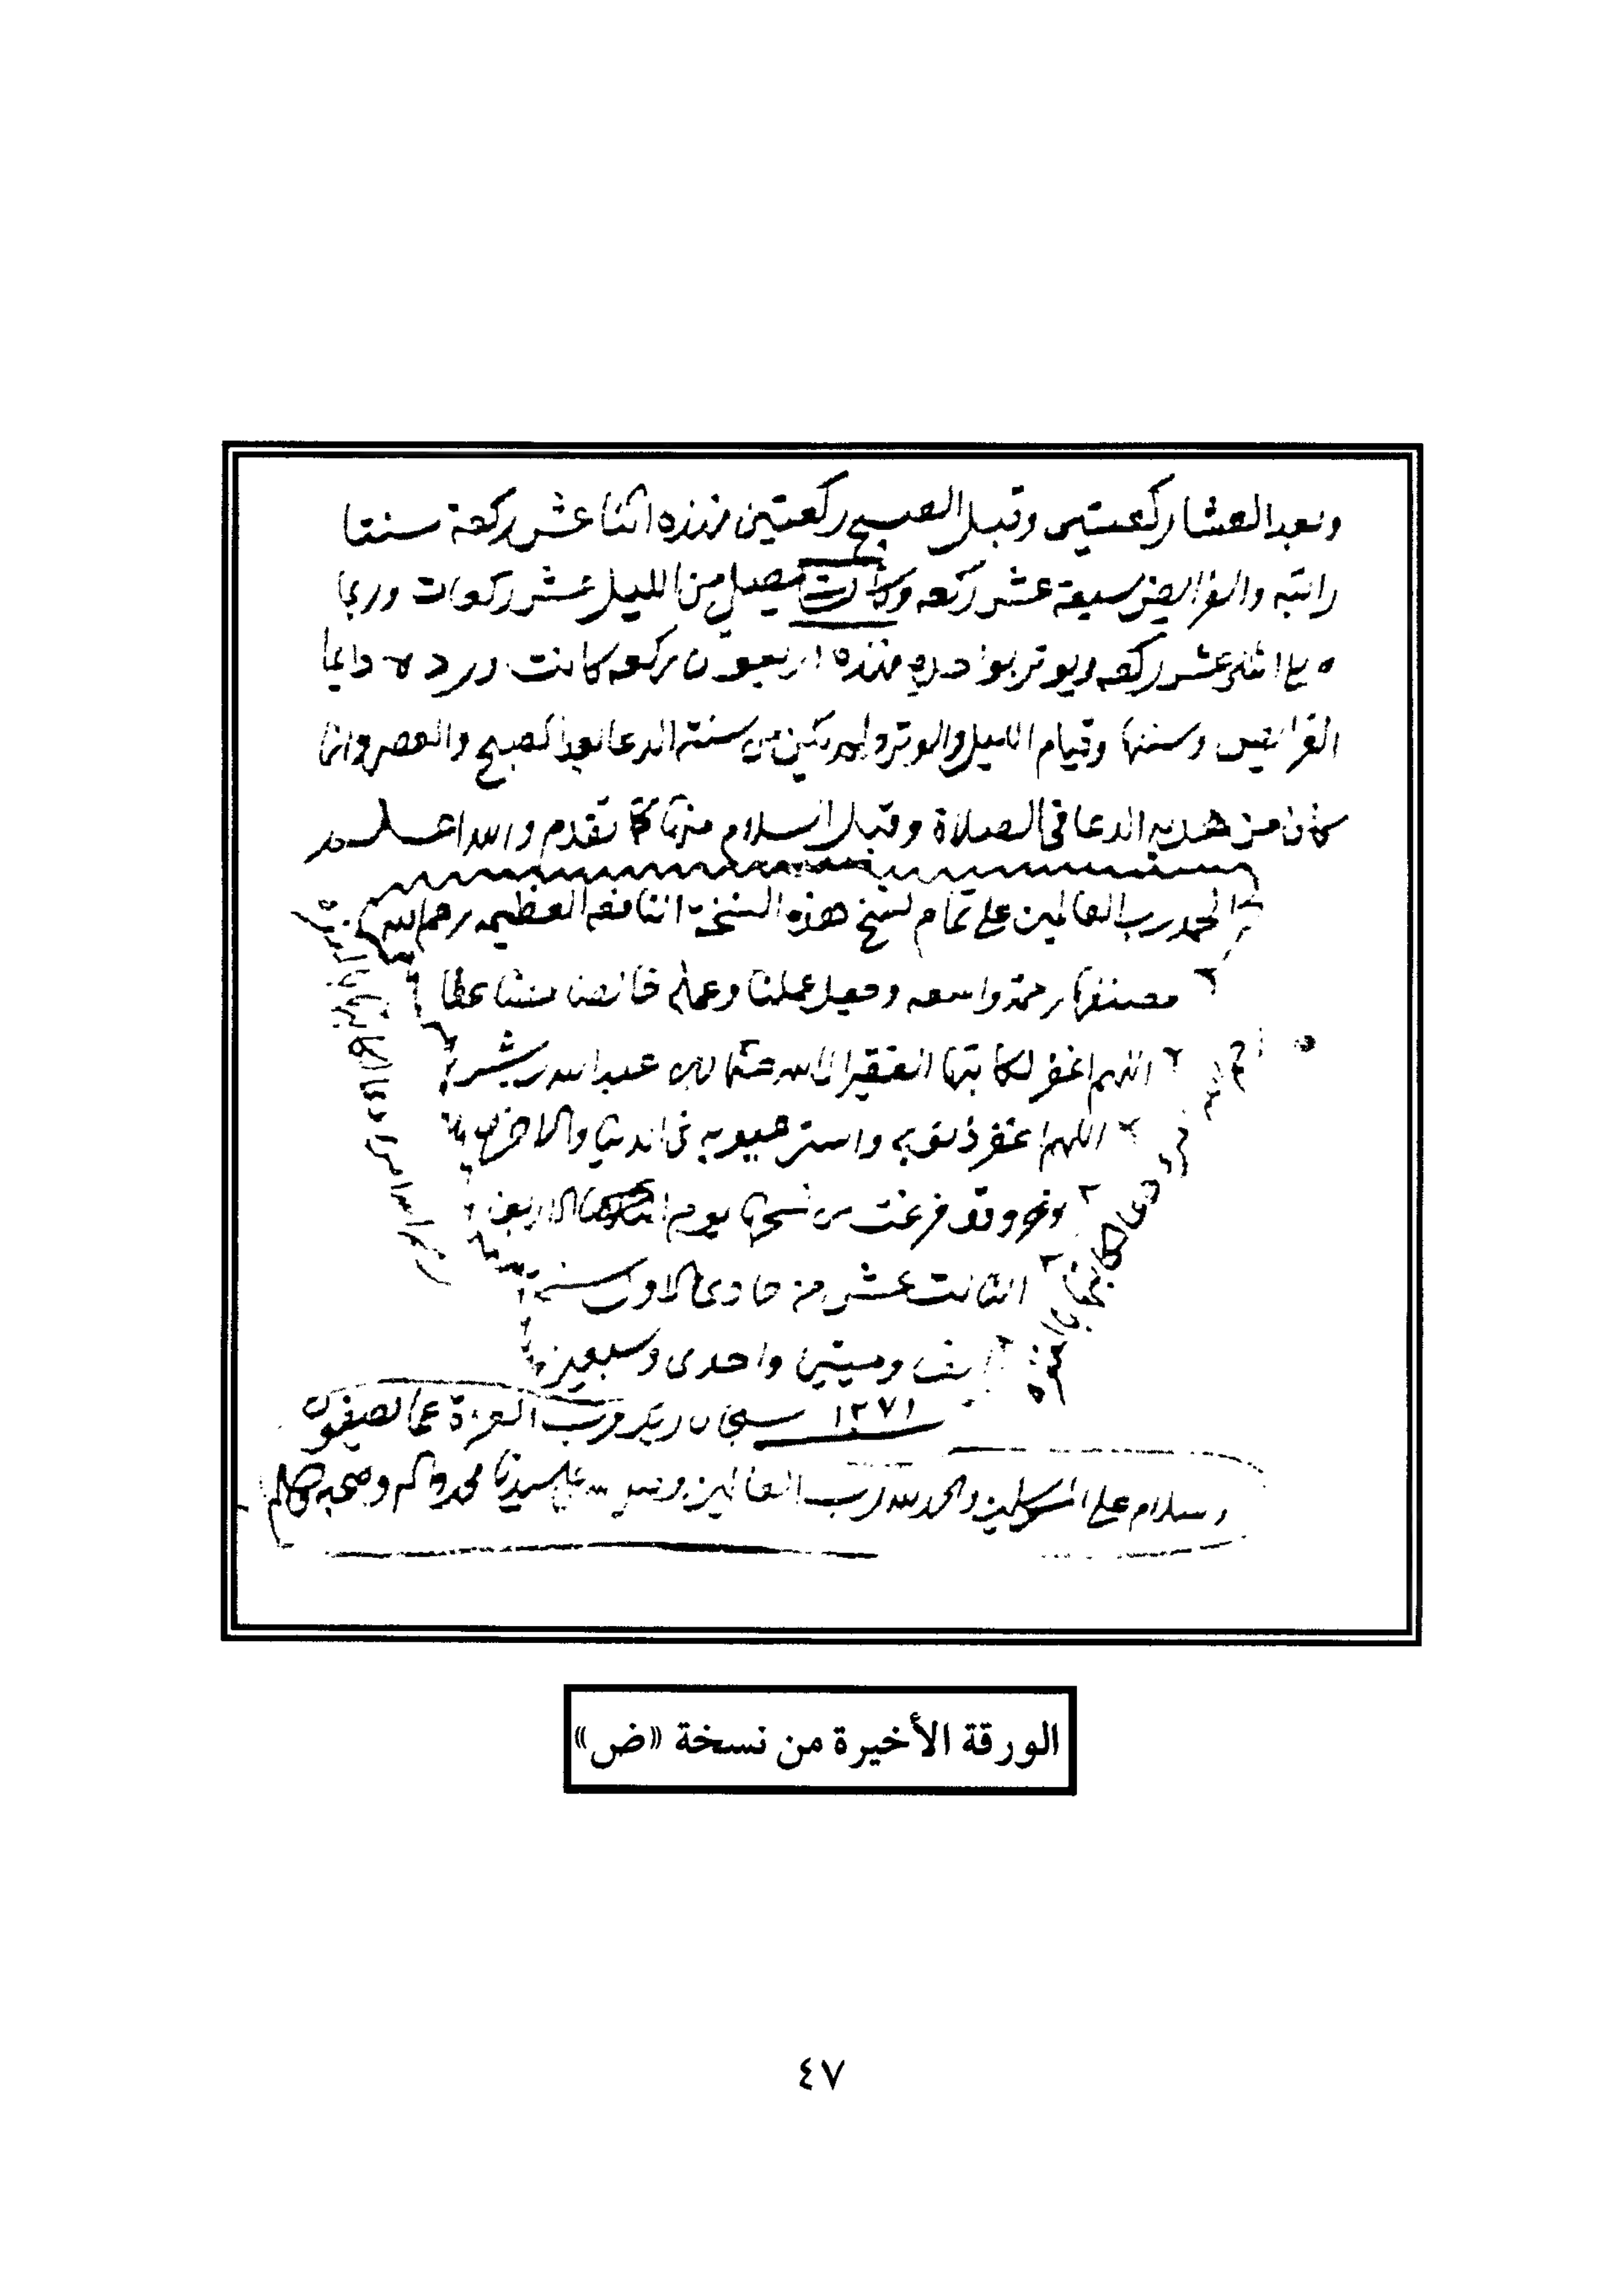 وبعد العشا ركعتين وقبل الصبح ركعتين فهذه اثنا عشر ركعة سنتا
راتبه والفرايض سبعة عشر ركعه وكانت يصلي من الليل عشر ركعات وربما
اثني عشر ركعه ويوتر بواحده فهذه اربعون ركعه كانت ورده دايما
الفرايض وسننها وقيام الليل والوتر ولم يكن من سنته الدعا بعد الصبح والعصر وانما
كان من هديه الدعا في الصلاة وقبل السلام منها كما تقدم والله اعلم
الحمد لله رب العالمين على تمام نسخ هذه النسخة النافعه العظيمه رحم الله
مصنفها رحمة واسعه وجعل عملنا وعمله خالصا
اللهم اغفر لكاتبها الفقير الى الله عبد الله
اللهم اغفر ذنوبه واستر عيوبه في الدنيا والاخره
وقد فرغت من نسخها يوم الاربعا
الثالث عشر من جمادى الاول سنة
الف وميتين واحدى وسبعين
١٢٧١ سبحان ربك رب العزة عما يصفون
وسلام على المرسلين والحمد لله رب العالمين وصلى الله على سيدنا محمد واله وصحبه وسلم
دعا لكاتبها بالمغفره
الورقة الأخيرة من نسخة «ض»
٤٧